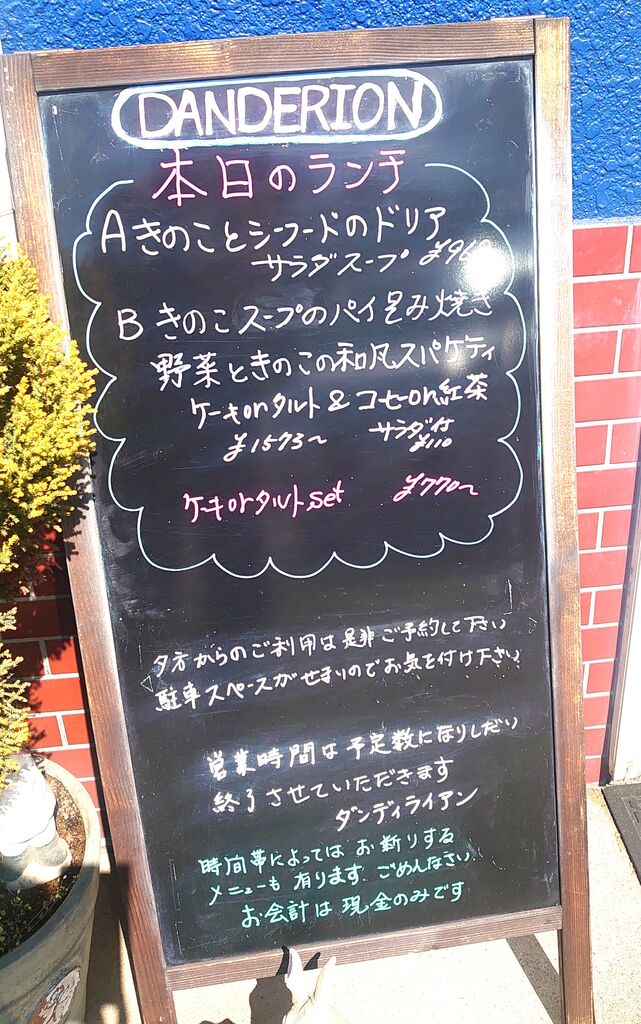 DANDERION
本日のランチ
Aきのことシーフードのドリア
サラダスープ
Bきのこスープのパイ包み焼き
野菜ときのこの和風スパゲティ
ケーキorタルト&コーヒーor紅茶
¥1573〜 サラダ付
¥110
ケーキorタルトset ¥770〜
夕方からのご利用は是非ご予約して下さい
駐車スペースがせまいのでお気を付け下さい
営業時間は予定数になりしだい
終了させていただきます
ダンディライアン
時間帯によってはお断りする
メニューも有ります。ごめんなさい
お会計は現金のみです